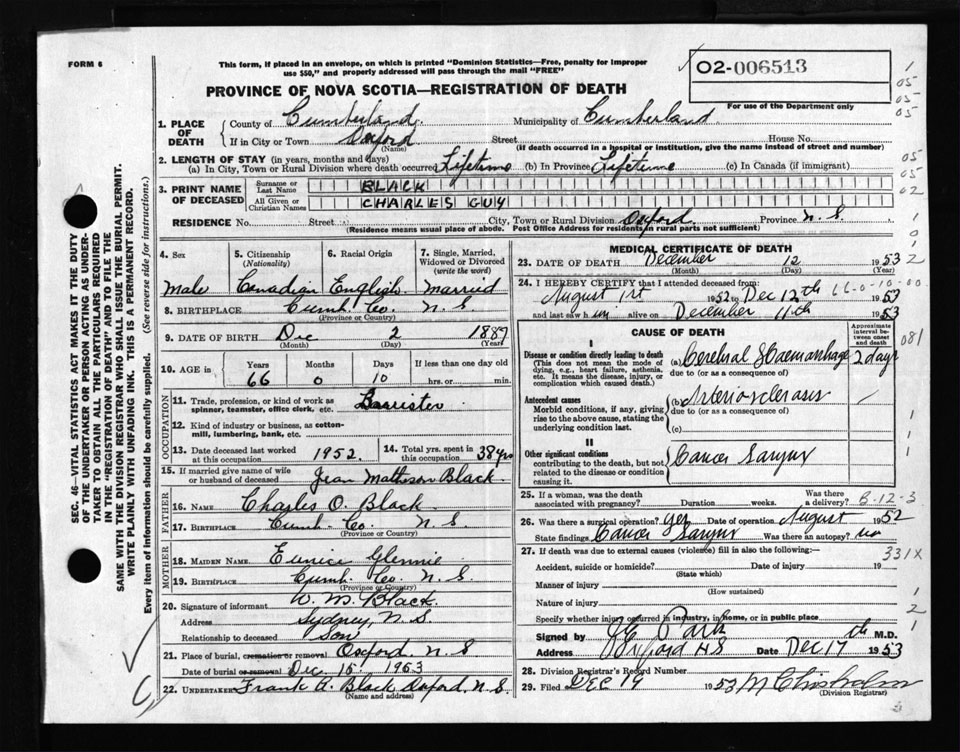 FORM 6
This form, if placed in an envelope, on which is printed "Dominion Statistics—Free, penalty for improper
use $50," and properly addressed will pass through the mail "FREE"
O2-006513
For use of the Department only
PROVINCE OF NOVA SCOTIA—REGISTRATION OF DEATH
1. PLACE OF DEATH
County of Cumberland. Municipality of Cumberland
If in City or Town Oxford Street House No.
(Name) (If death occurred in a hospital or institution, give the name instead of street and number)
2. LENGTH OF STAY (in years, months and days)
(a) In City, Town or Rural Division where death occurred Lifetime (b) In Province Lifetime (c) In Canada (if immigrant)
3. PRINT NAME OF DECEASED
Surname or Last Name BLACK
All Given or Christian Names CHARLES GUY
RESIDENCE No. Street City, Town or Rural Division Oxford Province N.S.
(Residence means usual place of abode. Post Office Address for residents in rural parts not sufficient)
4. Sex 5. Citizenship (Nationality) 6. Racial Origin 7. Single, Married, Widowed or Divorced (write the word)
Male Canadian English Married
8. BIRTHPLACE Cumb. Co. N.S.
(Province or Country)
9. DATE OF BIRTH Dec 2 1887
(Month) (Day) (Year)
10. AGE in Years Months Days If less than one day old
66 0 10 hrs. or min.
OCCUPATION
11. Trade, profession, or kind of work as spinner, teamster, office clerk, etc. Barrister
12. Kind of industry or business, as cotton-mill, lumbering, bank, etc.
13. Date deceased last worked at this occupation 1952. 14. Total yrs. spent in this occupation 38 yrs
15. If married give name of wife or husband of deceased Jean Mathison Black.
FATHER
16. Name Charles O. Black.
17. Birthplace Cumb. Co. N.S.
(Province or Country)
MOTHER
18. Maiden Name Eunice Glennie
19. Birthplace Cumb. Co. N.S.
(Province or Country)
20. Signature of informant W. M. Black.
Address Sydney, N.S.
Relationship to deceased Son
21. Place of burial, cremation or removal Oxford. N.S.
Date of burial or removal Dec. 15' 1953
22. Undertaker Frank A. Black Oxford, N.S.
(Name and address)
MEDICAL CERTIFICATE OF DEATH
23. DATE OF DEATH December 12 1953
(Month) (Day) (Year)
24. I HEREBY CERTIFY that I attended deceased from:
August 1st 1952 to Dec 12th 1953
and last saw him alive on December 11th 1953
66-0-10-00
CAUSE OF DEATH
Approximate interval between onset and death
I
Disease or condition directly leading to death
(This does not mean the mode of dying, e.g., heart failure, asthenia, etc. It means the disease, injury, or complication which caused death.)
(a) Cerebral Haemorrhage 2 days
due to (or as a consequence of)
Antecedent causes
Morbid conditions, if any, giving rise to the above cause, stating the underlying condition last.
(b) Arteriosclerosis
due to (or as a consequence of)
(c)
II
Other significant conditions
contributing to the death, but not related to the disease or condition causing it.
Cancer Larynx
25. If a woman, was the death associated with pregnancy? Duration weeks. Was there a delivery?
8-12-3
26. Was there a surgical operation? Yes Date of operation August 1952
State findings Cancer Larynx Was there an autopsy? no
27. If death was due to external causes (violence) fill in also the following:—
331X
Accident, suicide or homicide? Date of injury 19
(State which)
Manner of injury
(How sustained)
Nature of injury
Specify whether injury occurred in industry, in home, or in public place
Signed by Park M.D.
Address Oxford NS Date Dec 17th 1953
28. Division Registrar's Record Number
29. Filed DEC 19 1953 M Chisholm
(Division Registrar)
SEC. 46—VITAL STATISTICS ACT MAKES IT THE DUTY
OF THE UNDERTAKER OR PERSON ACTING AS UNDER-
TAKER TO OBTAIN ALL THE PARTICULARS REQUIRED
IN THE "REGISTRATION OF DEATH" AND TO FILE THE
SAME WITH THE DIVISION REGISTRAR WHO SHALL ISSUE THE BURIAL PERMIT.
WRITE PLAINLY WITH UNFADING INK. THIS IS A PERMANENT RECORD.
Every item of information should be carefully supplied. (See reverse side for instructions.)
1
05
05
05
05
05
02
1
0
2
081
1
1
1
1
2
1